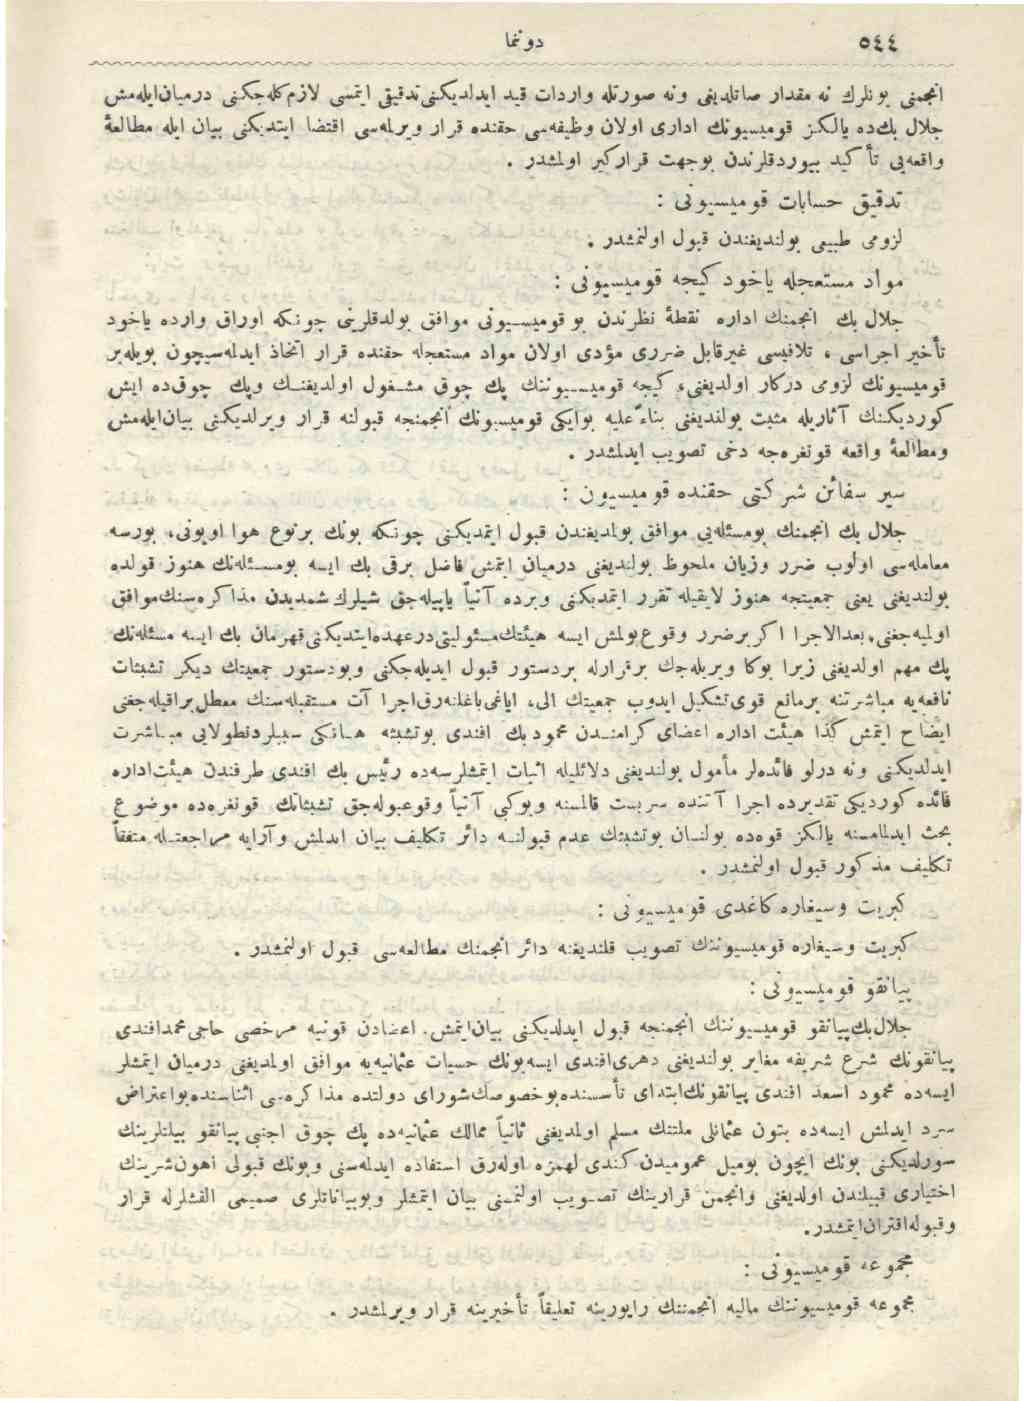 ٥٤٤ دوننما
انجمنی بونلرك نه مقدار صاتلدیغی ونه صورتله واردات قید ایدلدیكنی تدقیق ایتمسی لازم كله جكنی درمیان ایله مش
جلال بك ده یالكز قومیسیونك اداری اولان وظیفه سی حقنده قرار ویرلمه سی اقتضا ایتدیكنی بیان ایله مطالعهٔ
واقعه یی تأكید بیوردقلرندن بوجهت قراركیر اولمشدر .
تدقیق حسابات قومیسیونی :
لزومی طبیعی بولندیغندن قبول اولنمشدر .
مواد مستعجله یاخود كیجه قومیسیونی :
جلال بك انجمنك اداره نقطهٔ نظرندن بو قومیسیونی موافق بولدقلرینی چونكه اوراق وارده یاخود
تأخیر اجراسی ، تلافیسی غیرقابل ضرری مؤدی اولان مواد مستعجله حقنده قرار اتخاذ ایدلمه سیچون بویله بر
قومیسیونك لزومی دركار اولدیغنی، كیجه قومیسیوننك پك چوق مشغول اولدیغنك وپك چوق ده ایش
كوردیكنك آثاریله مثبت بولندیغنی بناءً علیه بوایكی قومیسیونك انجمنجه قبولنه قرار ویرلدیكنی بیان ایله مش
ومطالعهٔ واقعه قونغره جه دخی تصویب ایدلمشدر .
سیر سفائن شركتی حقنده قومیسیون :
جلال بك انجمنك بومسئله یی موافق بولمدیغندن قبول ایتمدیكنی چونكه بونك برنوع هوا اویونی، بورسه
معامله سی اولوب ضرر وزیان ملحوظ بولندیغنی درمیان ایتمش فاضل برقی بك ایسه بومسئله نك هنوز قولده
بولندیغنی یعنی جمعیتجه هنوز لایقیله تقرر ایتمدیكنی وبرده آتیاً یاپیله جق شیلرك شمدیدن مذاكره سنك موافق
اولمیه جغنی، بعدالاجرا اكر برضرر وقوع بولمش ایسه هیئتك مسئولیتی درعهده ایتدیكنی قهرمان بك ایسه مسئله نك
پك مهم اولدیغنی زیرا بوكا ویریله جك برقرارله بردستور قبول ایدیله جكنی وبودستور جمعیتك دیكر تشبثات
نافعه یه مباشرتنه برمانع قوی تشكیل ایدوب جمعیتك الی، ایاغی باغلنه رق اجرا آت مستقبله سنك معطل براقیله جغنی
ایضاح ایتمش كذا هیئت اداره اعضای كرامندن محمود بك افندی بوتشبثه هانكی سببلردنطولایی مباشرت
ایدلدیكنی ونه درلو فائده لر مأمول بولندیغنی دلائلیله اثبات ایتمشلرسه ده رئیس بك افندی طرفندن هیئت اداره
فائده كوردیكی تقدیرده اجرا آتنده سربست قالمسنه وبوكبی آتیاً وقوعبوله جق تشبثاتك قونغره ده موضوع
بحث ایدلمامسنه یالكز قوه ده بولنان بوتشبثك عدم قبولنه دائر تكلیف بیان ایدلمش وآرایه مراجعتله متفقاً
تكلیف مذكور قبول اولنمشدر .
كبریت وسیغاره كاغدی قومیسیونی :
كبریت وسیغاره قومیسیوننك تصویب قلندیغنه دائر انجمنك مطالعه سی قبول اولنمشدر .
پیانقو قومیسیونی :
جلال بك پیانقو قومیسیوننك انجمنجه قبول ایدلدیكنی بیان ایتمش. اعضادن قونیه مرخصی حاجی محمدافندی
پیانقونك شرع شریفه مغایر بولندیغنی دهری افندی ایسه بونك حسیات عثمانیه یه موافق اولمدیغنی درمیان ایتمشلر
ایسه ده محمود اسعد افندی پیانقونك ابتدای تأسسنده بوخصوصك شورای دولتده مذاكره سی اثناسنده بواعتراض
سرد ایدلمش ایسه ده بتون عثمانلی ملتنك مسلم اولمدیغنی ثانیاً ممالك عثمانیه ده پك چوق اجنبی پیانقو بیلتلرینك
سورلدیكنی بونك ایچون بومیل عمومیدن كندی لهمزه اوله رق استفاده ایدلمه سنی وبونك قبولی اهون شرینك
اختیاری قبیلندن اولدیغنی وانجمن قرارینك تصویب اولنمسنی بیان ایتمشلر وبوبیاناتلری صمیمی القشلرله قرار
وقبوله اقتران ایتمشدر.
مجموعه قومیسیونی :
مجموعه قومیسیوننك مالیه انجمننك راپورینه تعلیقاً تأخیرینه قرار ویرلمشدر .